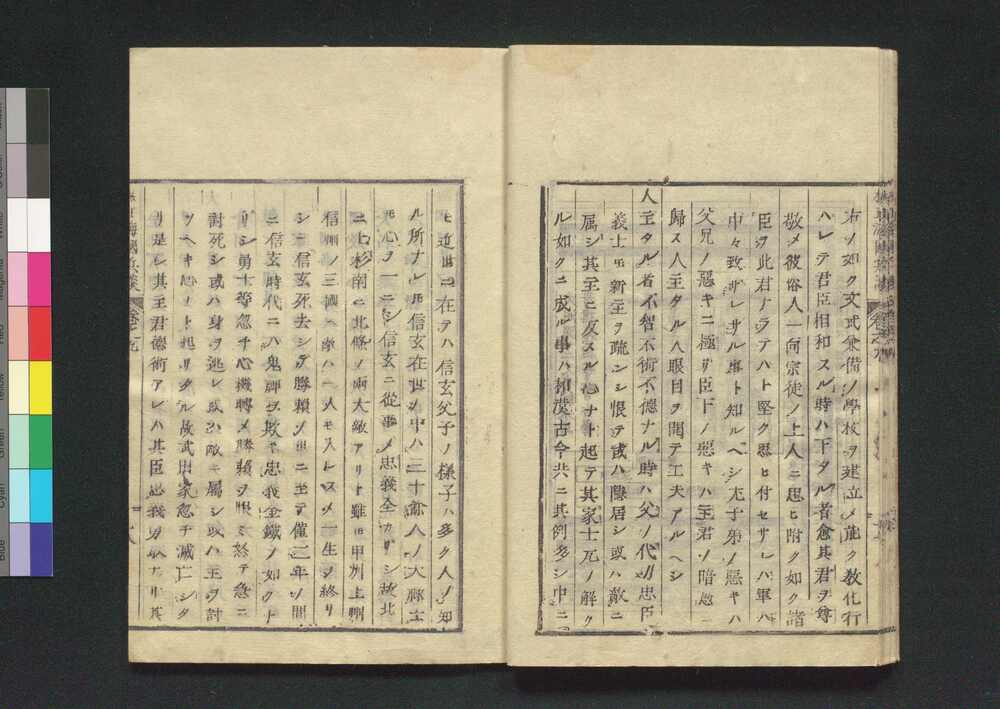 右ノ如ク文武兼備ノ學校ヲ建立メ能ク教化行
ハレテ君臣相和スル時ハ下タル者愈其君ヲ尊
敬メ彼俗人一向宗徒ノ上人ニ思ヒ附ク如ク諸
臣ヲ此君ナラテハト堅ク思ヒ付セサレハ軍ハ
中々致サレサル事ト知ルヘシ尤子弟ノ惡キハ
父兄ノ惡キニ極リ臣下ノ惡キハ主君ノ暗愚
歸ス人主タル人眼目ヲ開テ工夫アルヘシ
人主タル者不智不術不德ナル時ハ父ノ代ノ忠臣
義士モ新主ヲ疏ンシ恨テ或ハ隱居シ或ハ敵ニ
属シ其主ニ反スル心ナト起テ其家士瓦ノ解ク
ル如クニ成ル事ハ和漢古今共ニ其例多シ中ニ
モ近世ニ在テハ信玄父子ノ樣子ハ多ク人ノ知
ル所ナレ𪜈信玄在世ノ中ハ三十余人ノ大將士
心ヲ一ニシ信玄ニ從事メ忠義全カリシ故北
ニ上杉南ニ北條ノ兩大敵アリト雖𪜈甲州上州
信州ノ三國ヘ敵ハ一人モ入レスメ一生ヲ終リ
シニ信玄死去シテ勝賴ノ世ニ至テ僅二年ノ間
ニ信玄時代ニハ鬼神ヲ欺キ忠義金鐵ノ如クナ
リシ勇士等忽チ心機轉メ勝賴ヲ恨ミ終テ急ニ
討死シ或ハ身ヲ逃レ或ハ敵ニ属シ或ハ主ヲ討
ツヘキ心ナト起リタル故武田家忽チ滅亡シタ
リ是レ其主君德術アレハ其臣忠義勇
海國兵談